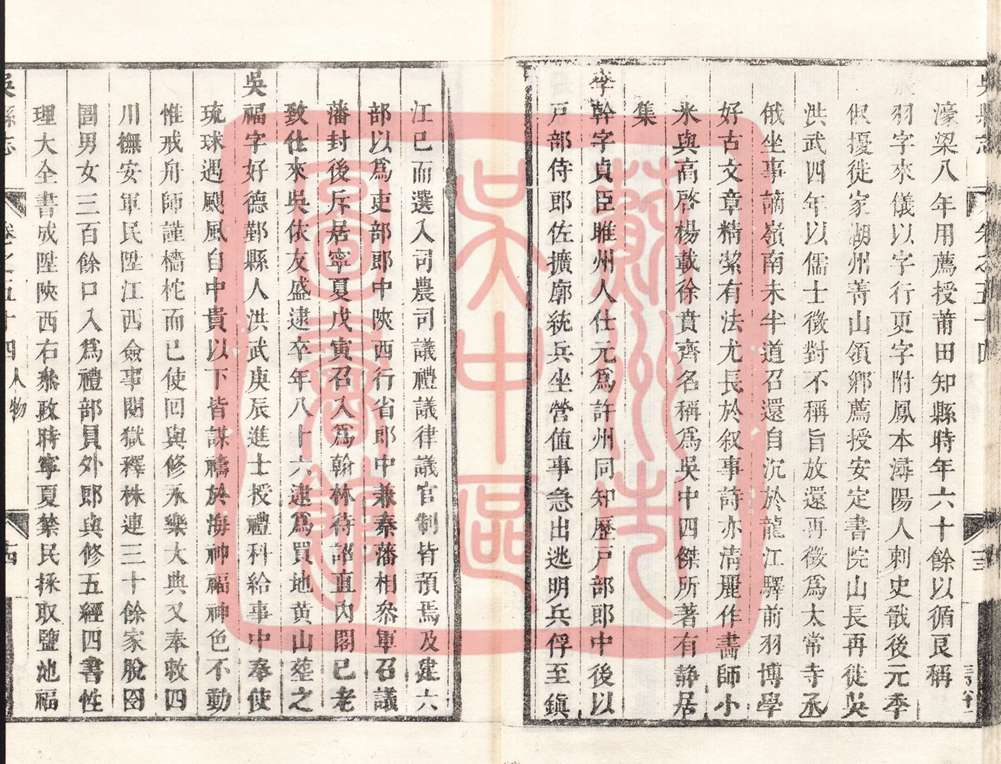 吳縣志 卷之五十四
濠梁八年用薦授莆田知縣時年六十餘以循良稱
張羽字來儀以字行更字附鳳本潯陽人刺史戩後元季
俶擾徙家湖州菁山領鄉薦授安定書院山長再徙吳
洪武四年以儒士徵對不稱旨放還再徵爲太常寺丞
俄坐事謫嶺南未半道召還自沉於龍江驛前羽博學
好古文章精潔有法尤長於叙事詩亦清麗作畵師小
米與高啓楊載徐賁齊名稱爲吳中四傑所著有静居
集
李幹字貞臣睢州人仕元爲許州同知歷戸部郎中後以
戸部侍郎佐擴廓統兵坐營值事急出逃明兵俘至鎮
江已而選入司農司議禮議律議官制皆預焉及建六
部以爲吏部郎中陝西行省郎中兼秦藩相叅軍召議
藩封後斥居寧夏戊寅召入爲翰林待詔直內閣已老
致仕來吳依友盛逮卒年八十六逮爲買地黄山塟之
吳福字好德鄞縣人洪武庚辰進士授禮科給事中奉使
琉球遇颶風自中貴以下皆謀禱於海神福神色不動
惟戒舟師謹檣柁而已使回與修永樂大典又奉敕四
川撫安軍民陞江西僉事閱獄釋株連三十餘家脫囹
圄男女三百餘口入爲禮部員外郎與修五經四書性
理大全書成陞陜西右叅政時寧夏禁民採取鹽池福
吳縣志 卷之五十四 人物
蘇州市
吳中區
圖書館